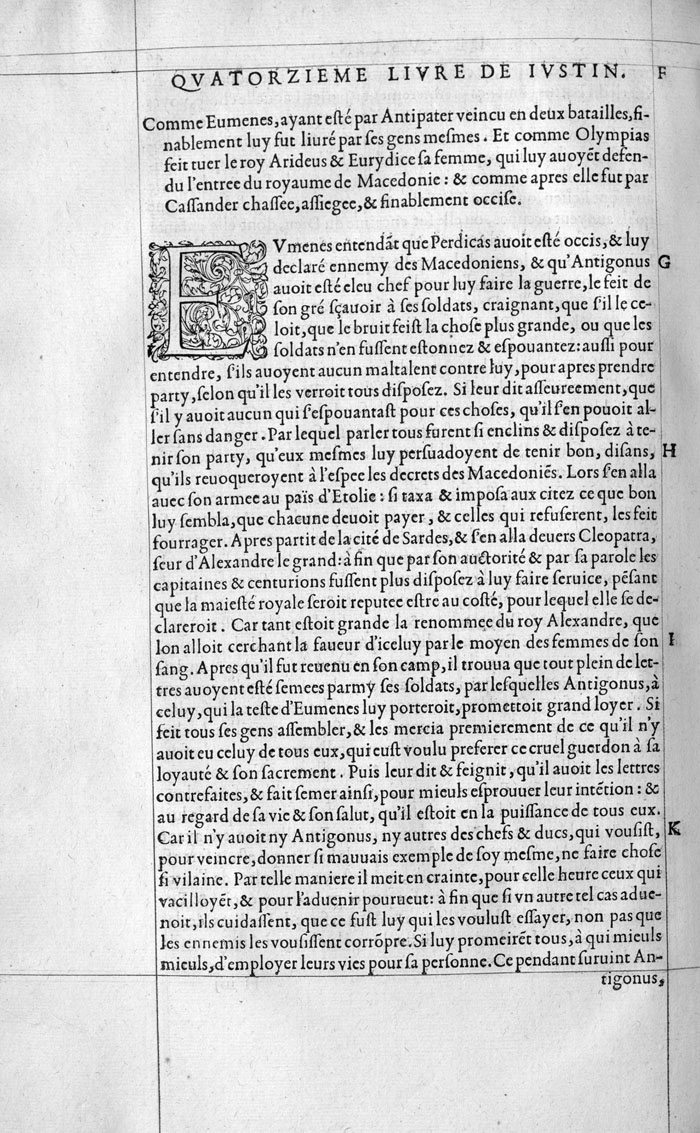 QVATORZIEME LIVRE DE IVSTIN. F
Comme Eumenes, ayant eſté par Antipater veincu en deux batailles, fi-
nablement luy fut liuré par ſes gens meſmes. Et comme Olympias
feit tuer le roy Arideus & Eurydice ſa femme, qui luy auoyẽt defen-
du l'entree du royaume de Macedonie: & comme apres elle fut par
Caſſander chaſſee, aſſiegee, & finablement occiſe.
EVmenes entendãt que Perdicas auoit eſté occis, & luy
declaré ennemy des Macedoniens, & qu'Antigonus G
auoit eſté eleu chef pour luy faire la guerre, le feit de
ſon gré ſçauoir à ſes ſoldats, craignant, que ſ'il le ce-
loit, que le bruit feiſt la choſe plus grande, ou que les
ſoldats n'en fuſſent eſtonnez & eſpouantez: auſſi pour
entendre, ſ'ils auoyent aucun maltalent contre luy, pour apres prendre
party, ſelon qu'il les verroit tous diſpoſez. Si leur dit aſſeureement, que
ſ'il y auoit aucun qui ſ'eſpouantaſt pour ces choſes, qu'il ſ'en pouoit al-
ler ſans danger. Par lequel parler tous furent ſi enclins & diſpoſez à te-
nir ſon party, qu'eux meſmes luy perſuadoyent de tenir bon, diſans, H
qu'ils reuoqueroyent à l'eſpee les decrets des Macedoniẽs. Lors ſ'en alla
auec ſon armee au païs d'Etolie: ſi taxa & impoſa aux citez ce que bon
luy ſembla, que chacune deuoit payer, & celles qui refuſerent, les feit
fourrager. Apres partit de la cité de Sardes, & ſ'en alla deuers Cleopatra,
ſeur d'Alexandre le grand: à fin que par ſon auctorité & par ſa parole les
capitaines & centurions fuſſent plus diſpoſez à luy faire ſeruice, pẽſant
que la maieſté royale ſeroit reputee eſtre au coſté, pour lequel elle ſe de-
clareroit. Car tant eſtoit grande la renommee du roy Alexandre, que
lon alloit cerchant la faueur d'iceluy par le moyen des femmes de ſon I
ſang. Apres qu'il fut reuenu en ſon camp, il trouua que tout plein de let-
tres auoyent eſté ſemees parmy ſes ſoldats, par leſquelles Antigonus, à
celuy, qui la teſte d'Eumenes luy porteroit, promettoit grand loyer. Si
feit tous ſes gens aſſembler, & les mercia premierement de ce qu'il n'y
auoit eu celuy de tous eux, qui euſt voulu preferer ce cruel guerdon à ſa
loyauté & ſon ſacrement. Puis leur dit & feignit, qu'il auoit les lettres
contrefaites, & fait ſemer ainſi, pour mieuls eſprouuer leur intẽtion: &
au regard de ſa vie & ſon ſalut, qu'il eſtoit en la puiſſance de tous eux.
Car il n'y auoit ny Antigonus, ny autres des chefs & ducs, qui vouſiſt, K
pour veincre, donner ſi mauuais exemple de ſoy meſme, ne faire choſe
ſi vilaine. Par telle maniere il meit en crainte, pour celle heure ceux qui
vacilloyẽt, & pour l'aduenir pourueut: à fin que ſi vn autre tel cas adue-
noit, ils cuidaſſent, que ce fuſt luy qui les vouluſt eſſayer, non pas que
les ennemis les vouſiſſent corrõpre. Si luy promeirẽt tous, à qui mieuls
mieuls, d'employer leurs vies pour ſa perſonne. Ce pendant ſuruint An-
tigonus,